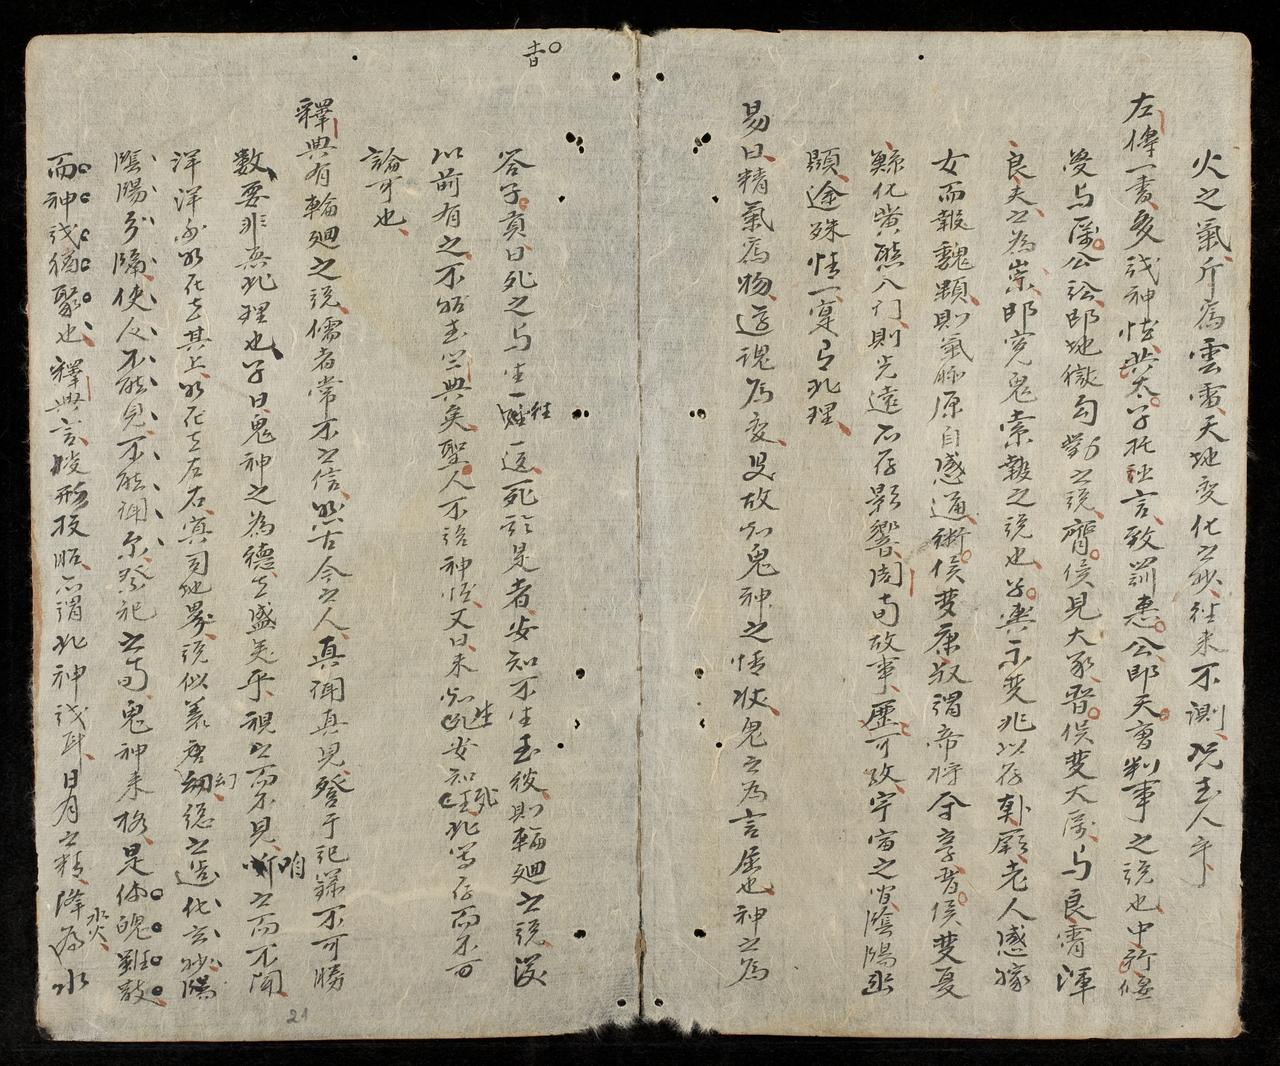 火之氣斤為雲雷天地变化之妙往来不測况玉人乎
左傳一書多談神怪共太子托狂言致罰惠公即天曺判事之説也中行偃
夢与厲公訟即地獄勾對之説齊侯見大豕晋侯夢大厲与良霄渾
良夫之為崇即寃鬼索報之説也公輿示夢兆以存朴厥老人感嫁
女而報魏顆則氣脉原自感通術侯夢康叔謂帝将余享晋侯夢夏
鯀化黄熊入門則先遠不存影響固甸故事歷可攷宇宙之肖陰陽幽
顕途殊情一寔有此理
易曰精氣為物遊魂為变是故知鬼神之情状鬼之為言屈也神之為
荅子貢曰死之与生一徃一返死於是者安知不生玉彼則輪廻之説漢
以前有之不始玉竺典矣聖人不語神怪又曰未知生安知死此寓存而不可
論可也
釋典有輪廻之説儒者常不之信然古今之人真聞真見登于記錄不可勝
數要非無此理也子曰鬼神之為德其盛矣乎視之而不見听之而不聞
洋洋乎如在其上如在其左右冥司地界説似荒唐幻総之造化玄妙陽
陰陽分隔使人不能見不能聞尔祭祀之旬鬼神来格是体魄雖散
而神識猶聚也釋典言脱形投胎所謂此神識耳日月之精降為水火水